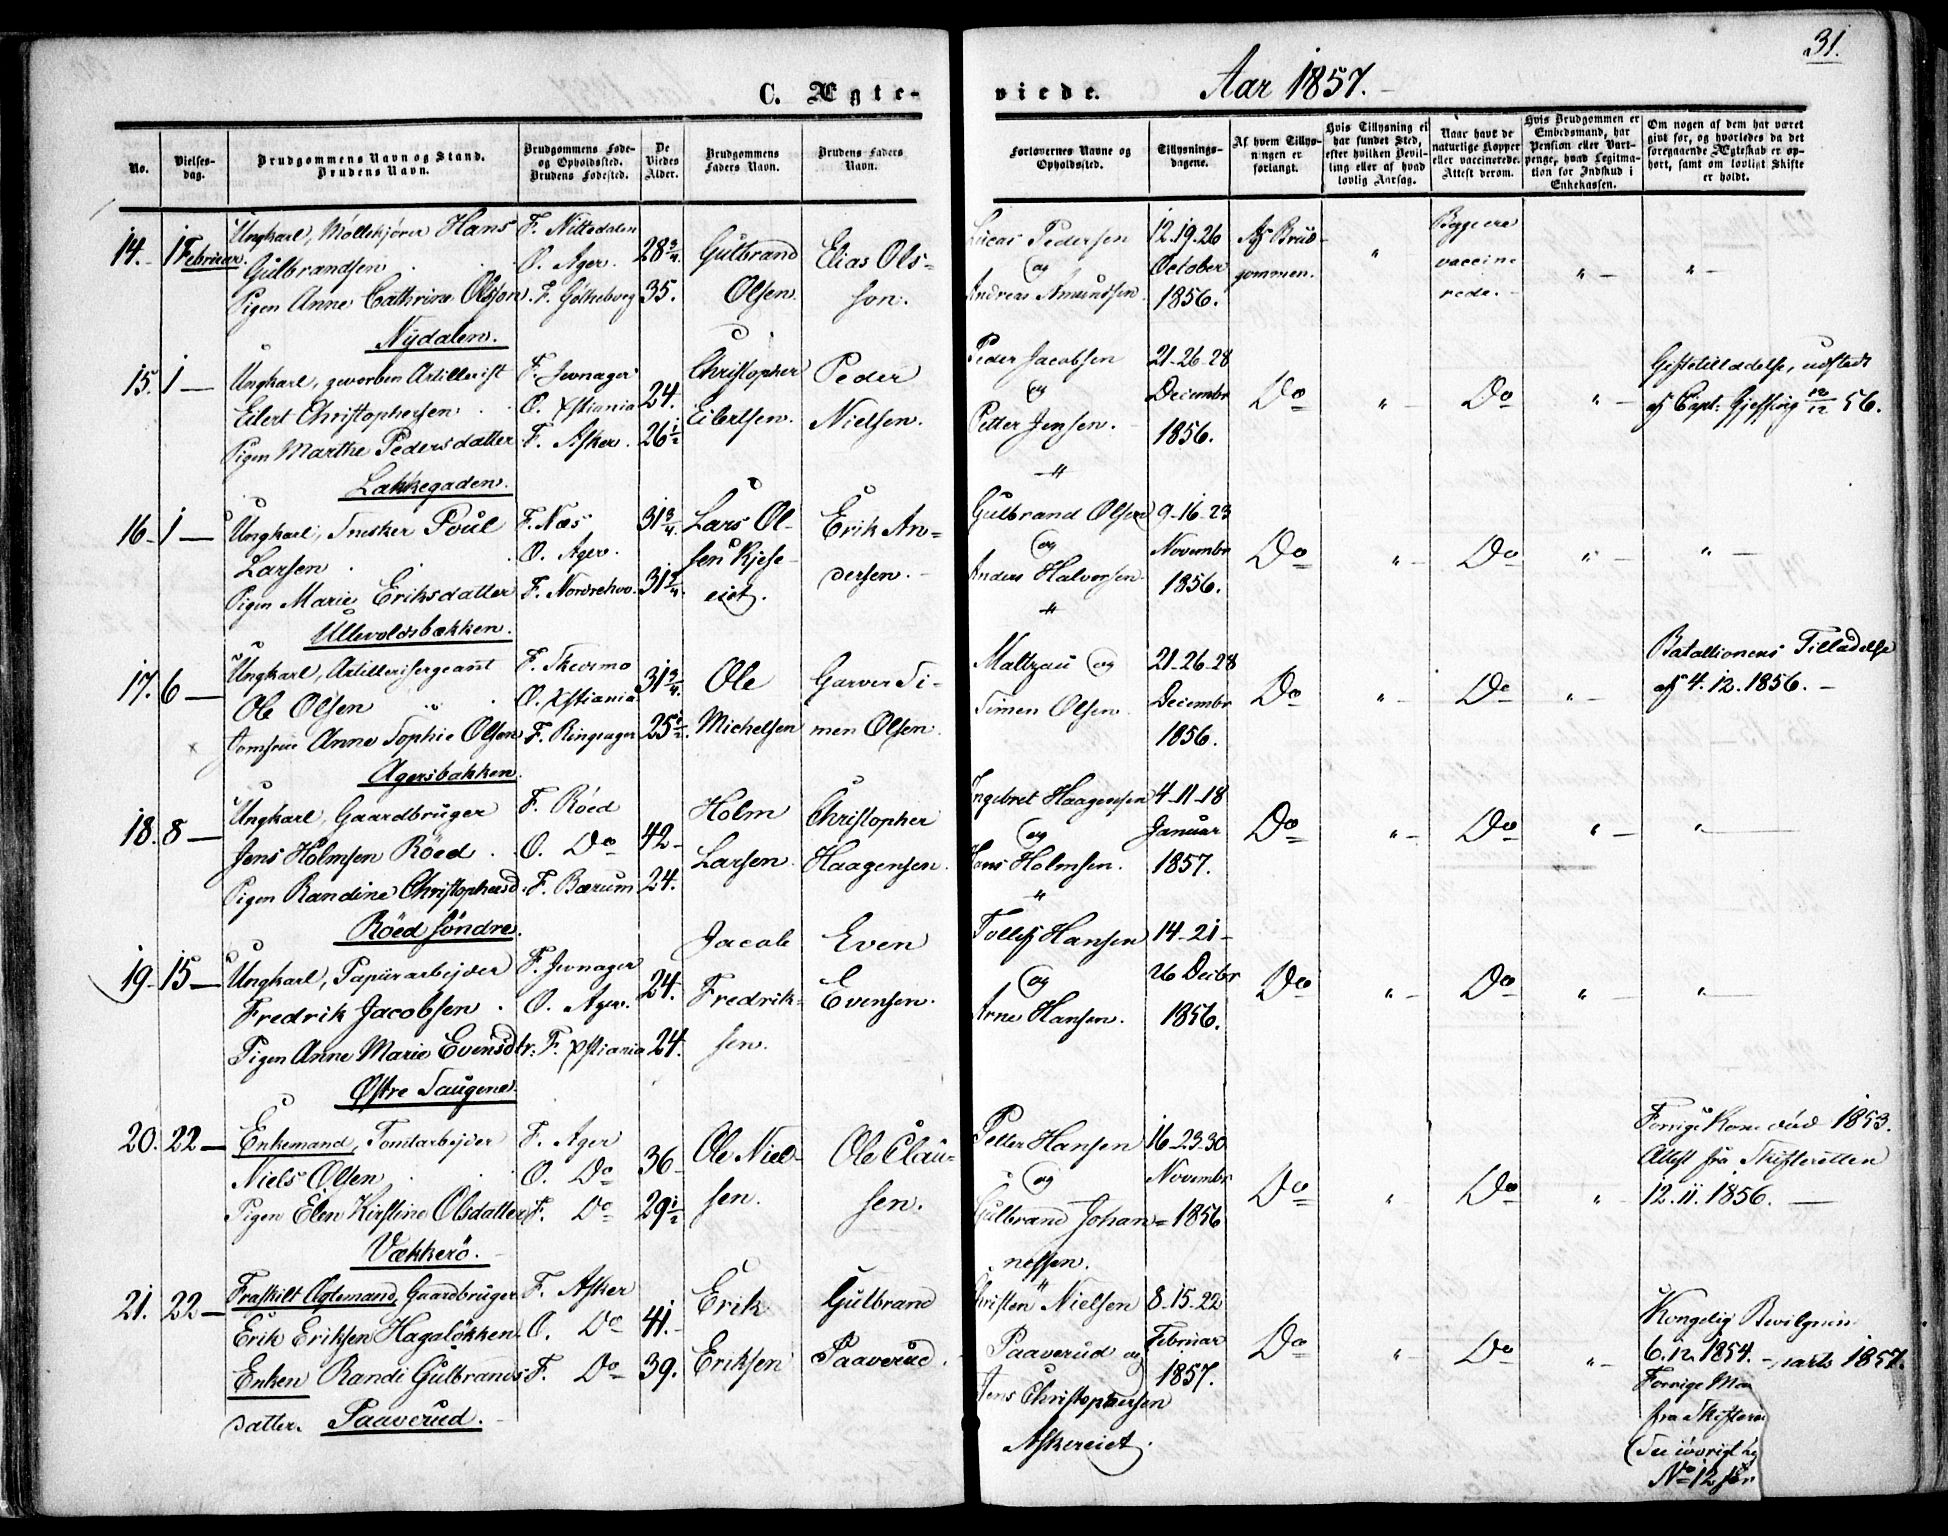 31.
C. Ægte-
viede.
Aar 1857.
No.
Vielses-
dag.
Brudgommens Navn og Stand.
Brudens Navn.
Brudgommens Føde-
og Opholdssted.
Brudens Fødested.
De
Viedes
Alder.
Brudgommens
Faders Navn.
Brudens Faders
Navn.
Forlovernes Navne og
Opholdssted.
Tillysnings-
dagene.
Af hvem Tillys-
ningen er
forlangt.
Hvis Tillysning ei
har fundet Sted,
efter hvilken Bevil-
ling eller af hvad
lovlig Aarsag.
Naar havt de
naturlige Kopper
eller vaccinerede.
Attest derom.
Hvis Brudgommen er
Embedsmand, har
Pension eller Vart-
penge, hvad Legitma-
tion for Indskud i
Enkekassen.
Om nogen af dem har været
gift før, og hvorledes da det
foregaaende Ægteskab er op-
hørt, samt om lovligt Skifte
er holdt.
14. 1 Februar.
Ungkarl, Møllekjører Hans
Gulbrandsen
Pigen Anne Cathrine Olsson.
Nydalen.
F. Nittedalen
O. Ager.
F. Gøtheborg
28 3/4.
35.
Gulbrand
Olsen.
Elias Ols-
son.
Lucas Pedersen
og
Andreas Amundsen.
12.19.26
October
1856.
Af Brud-
gommen.
"
Begge ere
vaccine
rede.
" -
" -
15. 1 -
Ungkarl, gevorben Artillerist
Eilert Christophersen
Pigen Marthe Pedersdatter
Lakkegaden.
F. Jevnager
O. Xstiania
F. Asker.
24.
26 1/2
Christopher
Eilertsen.
Peder
Nielsen.
Peder Jacobsen
og
Petter Jensen.
"
21-26-28
Decembr
1856.
Do
" -
Do
" -
Giftetilladelse, udstedt
af Capt: Gjessing 10/12 56.
16. 1 -
Ungkarl, Snekker Poul
Larsen
Pigen Marie Eriksdatter
Ullevoldsbakken.
F. Næs
O. Ager.
F. Nordrehov.
31 3/4.
31 3/4.
Lars Ol-
sen Kjese-
eiet.
Erik An-
dersen.
Gulbrand Olsen
og
Anders Halvorsen
"
9-16-23
Novembr
1856.
Do
" -
Do
" -
" -
17. 6 -
Ungkarl, Artillerisergeant
Ole Olsen
Jomfrue Anne Sophie Olsen
Agersbakken.
F. Skedsmo
O. Xstiania
F. Ringsager
31 3/4.
25 1/2.
Ole
Michelsen
Garver Si-
men Olsen.
Maltzau og
Simen Olsen.
21-26-28
Decembr
1856.
Do
" -
Do
" -
Batallionens Tilladelse
af 4.12.1856. -
18. 8 -
Ungkarl, Gaardbruger
Jens Holmsen Røed
Pigen Randine Christophersd.
Røed søndre.
F. Røed
O. Do
F. Bærum
42 -
24.
Holm
Larsen.
Christopher
Haagensen.
Ingebret Haagensen
og
Hans Holmsen.
"
4-11-18
Januar
1857.
Do
" -
Do
" -
" -
19. 15 -
Ungkarl, Papirarbejder
Fredrik Jacobsen
Pigen Anne Marie Evensdtr:
Østre Saugene.
F. Jevnager
O. Ager.
F. Xstiania
24.
24.
Jacob
Fredrik-
sen.
Even
Evensen.
Tollef Hansen
og
Arne Hansen.
14-21-
26 Decbr
1856.
Do
" -
Do
" -
" -
20. 22 -
Enkemand, Tomtarbejder
Niels Olsen
Pigen Elen Kirstine Olsdatter
Vækkerø.
F. Ager
O. Do
F. Do
36 -
29 1/2
Ole Niel-
sen.
Ole Clau-
sen.
Petter Hansen
og
Gulbrand Johan-
nessen.
"
16-23-30
Novembr
1856
Do
"
Do
"
Forrige Kone død 1853.
Attest fra Skifteretten
12.11.1856. -
21. 22 -
Fraskilt Ægtemand, Gaardbruger
Erik Eriksen Hagaløkken
Enken Randi Gulbrands
datter. Paaverud.
F. Asker
O. Do
F. Do
41.
39.
Erik
Eriksen
Gulbrand
Paaverud.
Christen Nielsen
Paaverud og
Jens Christophersen
Askereiet.
8-15-22
Februar
1857.
Do
" -
Do
" -
Kongelig Bevilgnin
6.12.1854. - arts 1857.
Forrige Ma
fra Skiftere
(See iøvrigt
No 12 for